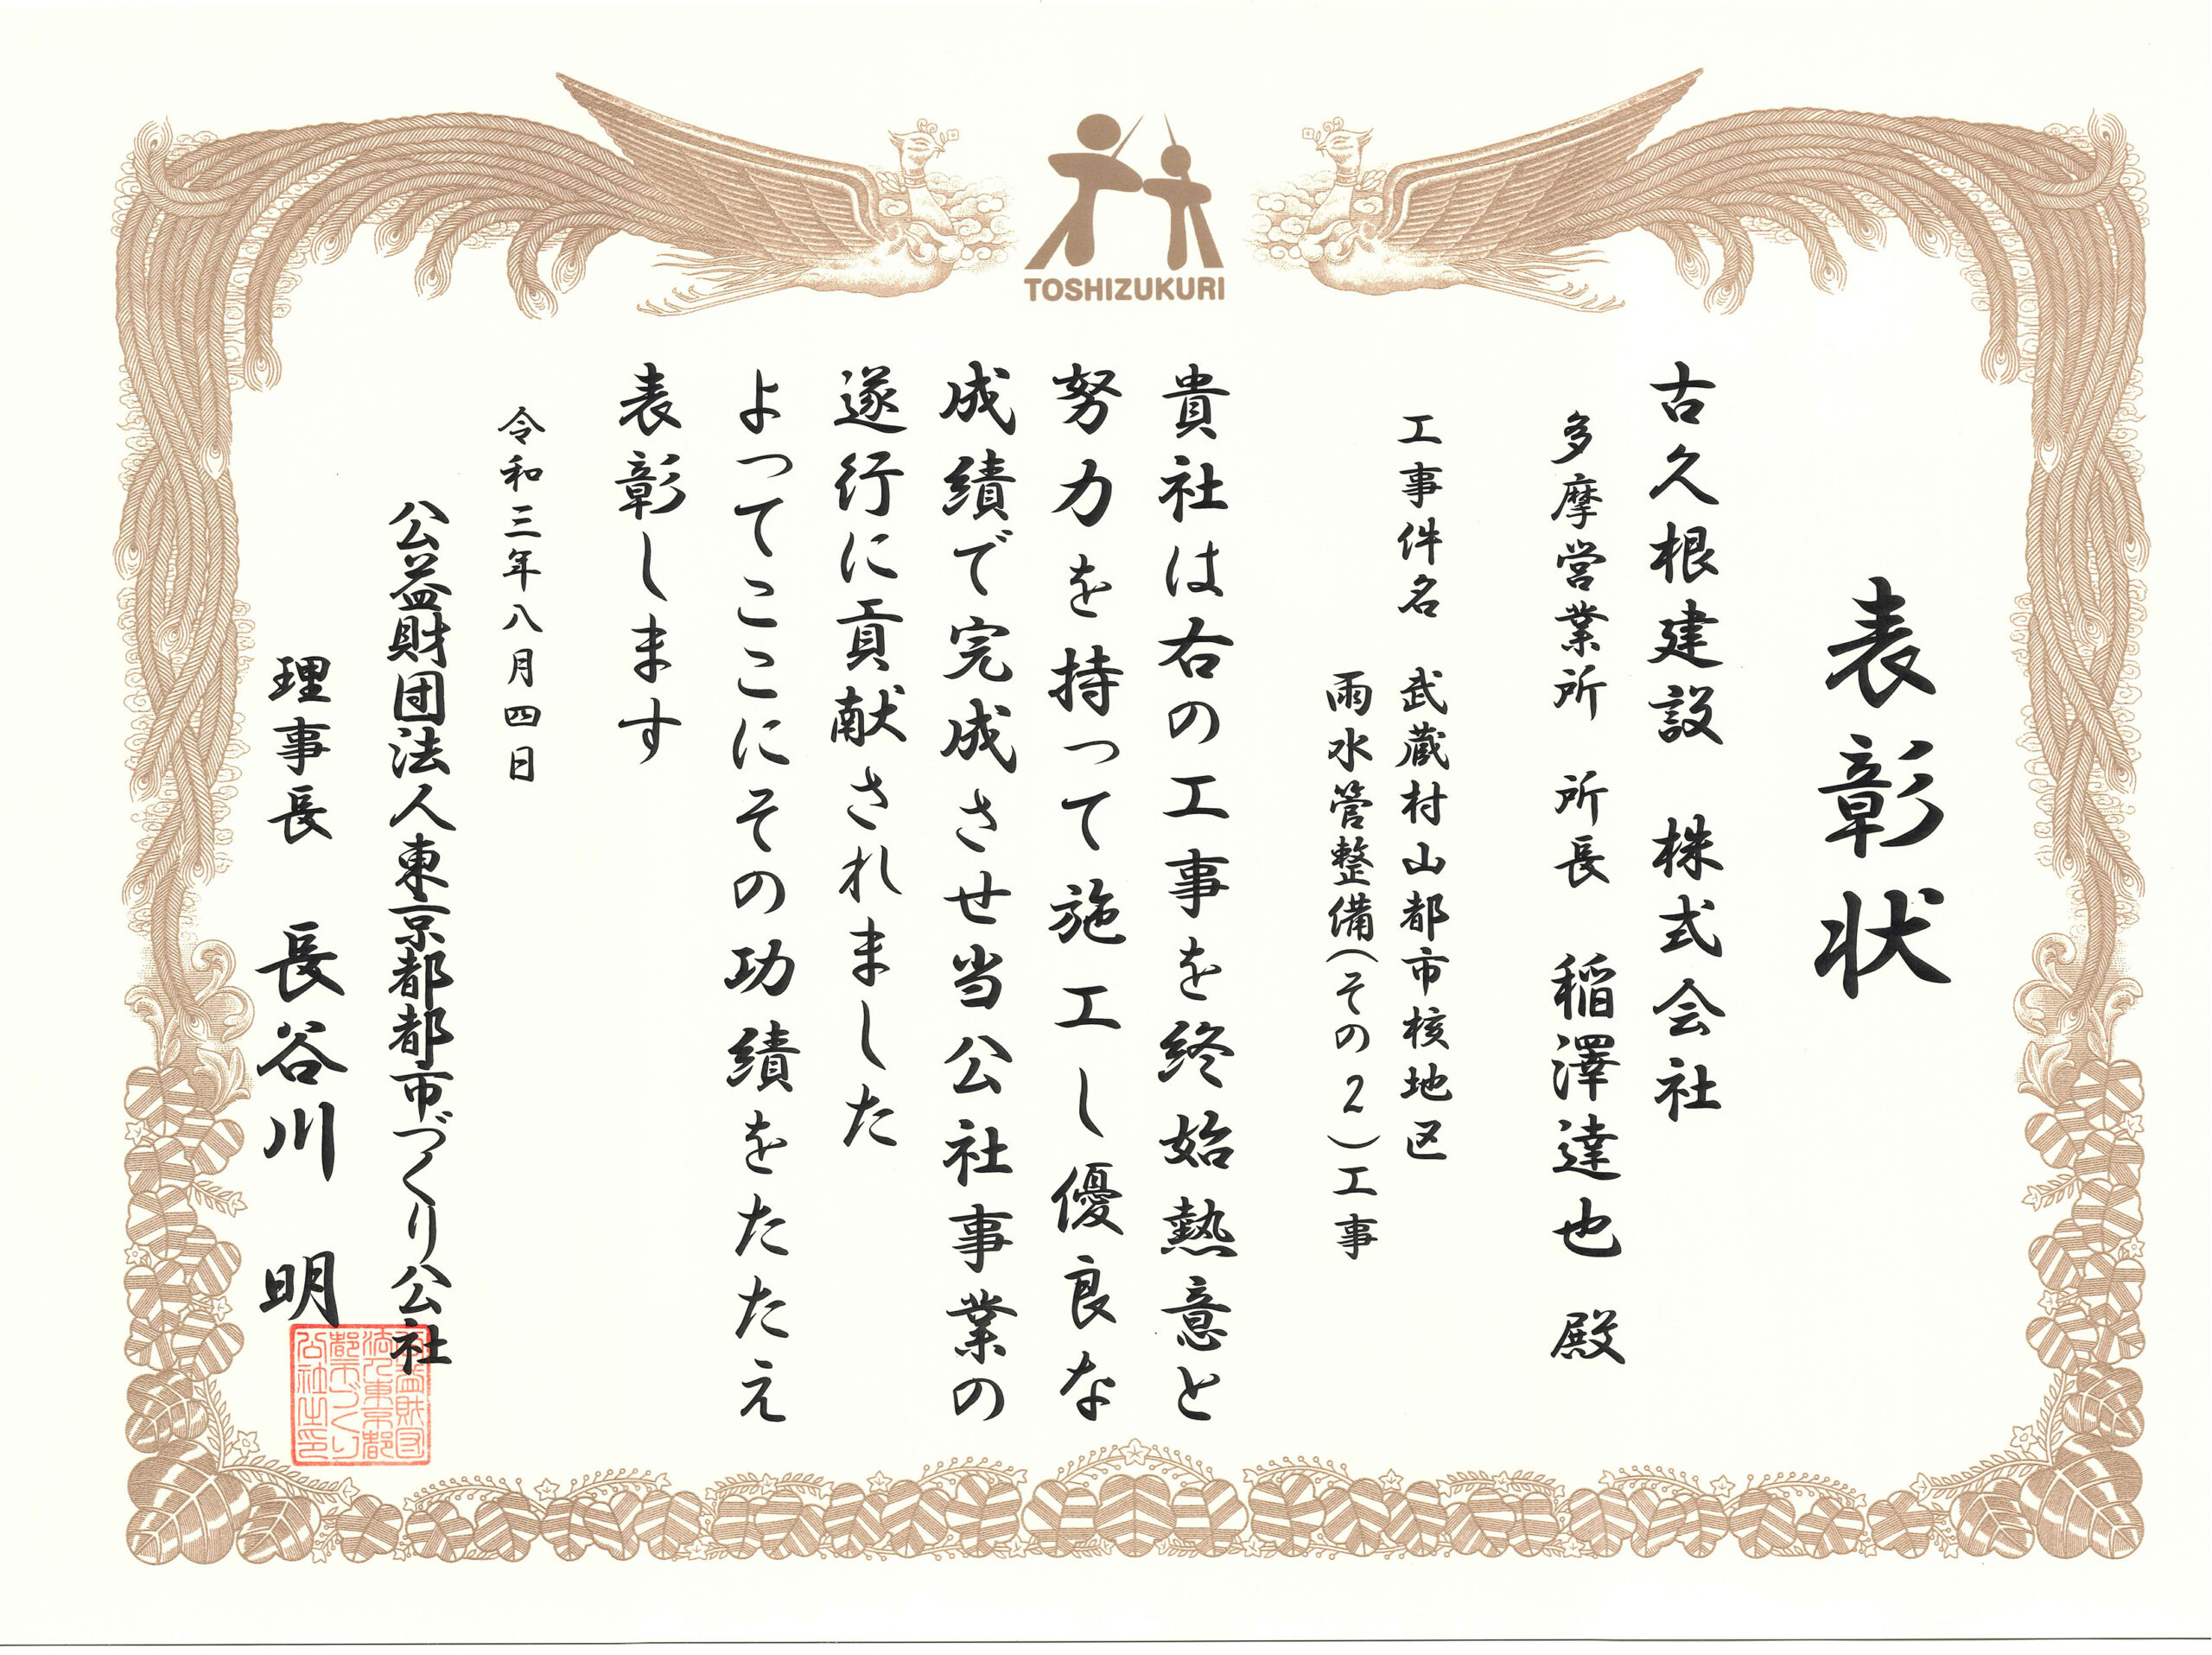 TOSHIZUKURI
表彰状
古久根建設　株式会社
多摩営業所　所長　稲澤達也　殿
工事件名　武蔵村山都市核地区
雨水管整備(その2)工事
貴社は右の工事を終始熱意と
努力を持って施工し優良な
成績で完成させ当公社事業の
遂行に貢献されました
よってここにその功績をたたえ
表彰します
令和三年八月四日
公益財団法人東京都都市づくり公社
理事長　長谷川　明
公益財団
法人東京都
都市づくり
公社之印